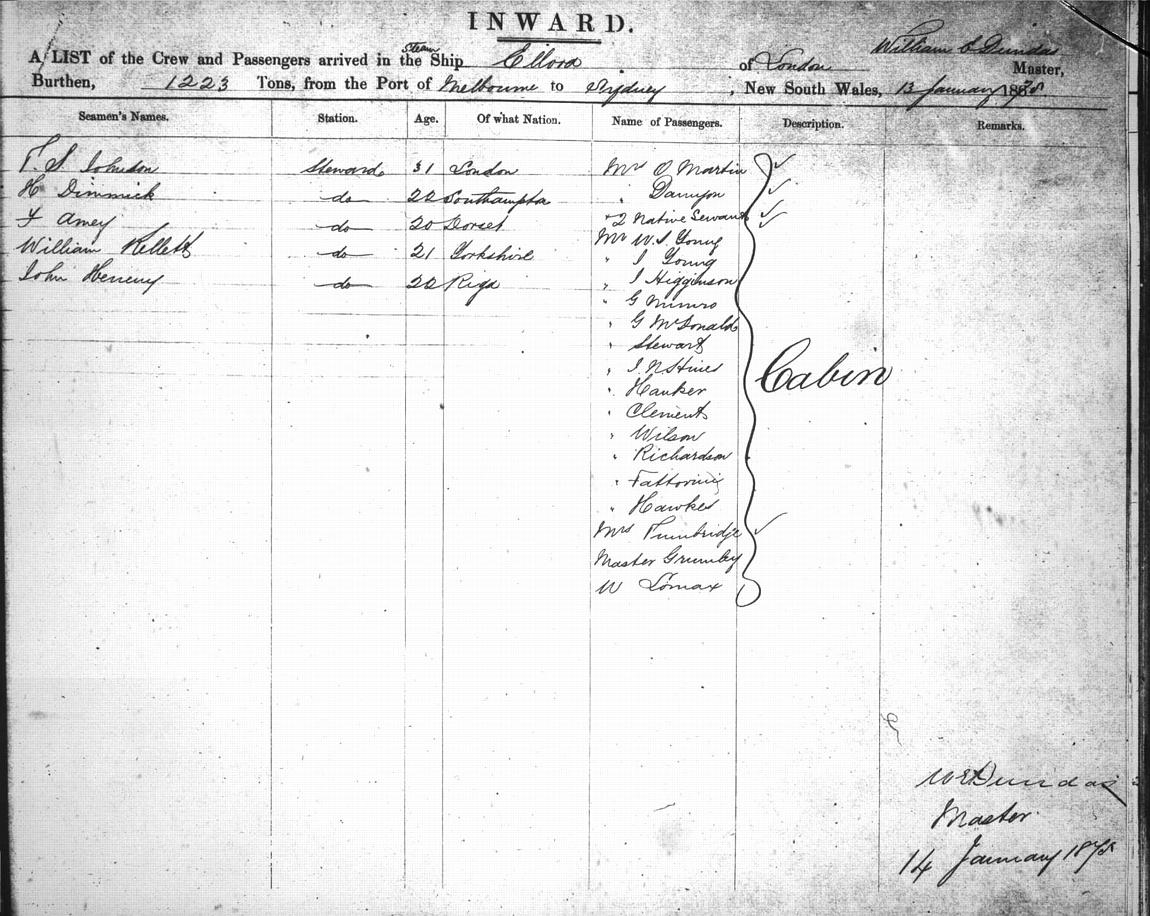 INWARD.
A LIST of the Crew and Passengers arrived in the Steam Ship Ellora of London William C Dundas Master,
Burthen, 1223 Tons, from the Port of Melbourne to Sydney, New South Wales, 13 January 187
Seamen's Names. Station. Age. Of what Nation. Name of Passengers. Description. Remarks.
T. S Johnson Steward 31 London Mrs O Martin
H Dimmick do 22 Southampton " Damyon
F Amey do 20 Dorset "2 Native Servants
William Kellett do 21 Yorkshire Mr W.S. Young
John do 22 Riga " J Young
" J Higginson
" G Munro
" G McDonald
" Stewart
" J. N Hines
" Hauker
" Clements
" Wilson
" Richardson
" Fattorini
" Hawkes
Mrs Tunbridge
Master Grumby
W Lomax
Cabin
W C Dundas
Master
14 January 187